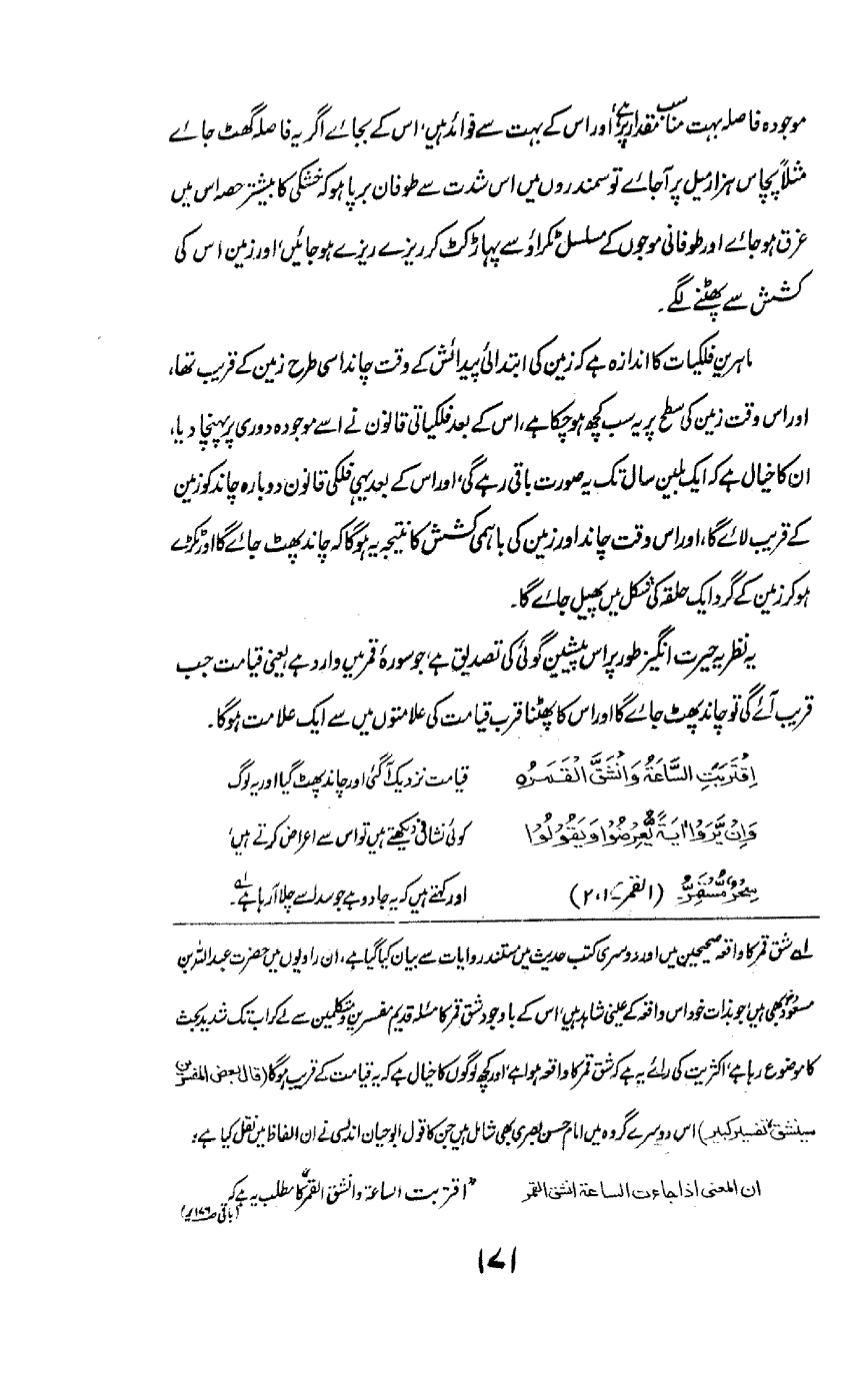 موجودہ فاصلہ بہت مناسب مقدار پر ہے، اور اس کے بہت سے فوائد ہیں، اس کے بجائے اگر یہ فاصلہ گھٹ جائے
مثلاً پچاس ہزار میل پر آجائے تو سمندروں میں اس شدت سے طوفان برپا ہو کہ خشکی کا بیشتر حصہ اس میں
غرق ہو جائے اور طوفانی موجوں کے مسلسل ٹکراؤ سے پہاڑ کٹ کر ریزے ریزے ہو جائیں، اور زمین اس کی
کشش سے پھٹنے لگے۔
ماہرین فلکیات کا اندازہ ہے کہ زمین کی ابتدائی پیدائش کے وقت چاند اسی طرح زمین کے قریب تھا،
اور اس وقت زمین کی سطح پر یہ سب کچھ ہو چکا ہے، اس کے بعد فلکیاتی قانون نے اسے موجودہ دوری پر پہنچا دیا،
ان کا خیال ہے کہ ایک بلین سال تک یہ صورت باقی رہے گی، اور اس کے بعد یہی فلکی قانون دوبارہ چاند کو زمین
کے قریب لائے گا، اور اس وقت چاند اور زمین کی باہمی کشش کا نتیجہ یہ ہوگا کہ چاند پھٹ جائے گا اور ٹکڑے
ہو کر زمین کے گرد ایک حلقہ کی شکل میں پھیل جائے گا۔
یہ نظریہ حیرت انگیز طور پر اس پیشین گوئی کی تصدیق ہے، جو سورۂ قمر میں وارد ہے، یعنی قیامت جب
قریب آئے گی تو چاند پھٹ جائے گا اور اس کا پھٹنا قرب قیامت کی علامتوں میں سے ایک علامت ہوگا۔
اِقْتَرَبَتِ السَّاعَةُ وَانْشَقَّ الْقَمَرُہ قیامت نزدیک آگئی اور چاند پھٹ گیا اور یہ لوگ
وَاِنْ يَّرَوْا اٰيَةً يُّعْرِضُوْا وَيَقُوْلُوْا کوئی نشانی دیکھتے ہیں تو اس سے اعراض کرتے ہیں،
سِحْرٌ مُّسْتَمِرٌّ (القمر ۔ ۲،۱) اور کہتے ہیں کہ یہ جادو ہے جو سدا سے چلا آرہا ہے۔ لہ
لہ شق قمر کا واقعہ صحیحین میں اور دوسری کتب حدیث میں مستند روایات سے بیان کیا گیا ہے، ان راویوں میں حضرت عبداللہ بن
مسعودؓ بھی ہیں، جو بذات خود اس واقعہ کے عینی شاہد ہیں، اس کے باوجود شق قمر کا مسئلہ قدیم مفسرین و متکلمین سے لے کر اب تک شدید بحث
کا موضوع رہا ہے، اکثریت کی رائے یہ ہے کہ شق قمر کا واقعہ ہوا ہے، اور کچھ لوگوں کا خیال ہے کہ یہ قیامت کے قریب ہوگا (قال بعض المفسرین
سینشق، تفسیر کبیر) اس دوسرے گروہ میں امام حسن بصری بھی شامل ہیں جن کا قول ابو حیان اندلسی نے ان الفاظ میں نقل کیا ہے:
ان المعنی اذا جاءت الساعۃ انشق القمر "اقتربت الساعۃ وانشق القمر" کا مطلب یہ ہے کہ
(باقی ص۱۷۶ پر)
۱۷۱